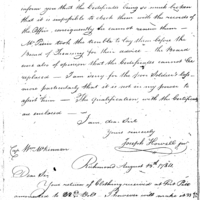 inform you that the Certificates being so much broken
that it is impossible to check them with the records of
the Office, consequently he cannot renew them —
Mr Pain took the trouble to lay them before the
Board of Treasury for their advice — the Board
was also of opinion that the Certificates cannot be
replaced — I am sorry for the poor Soldiers loss
more particularly that it is not in my power to
assist them — The qualification with the Certificates
are enclosed —
I am Dear Sir
Yours sincerely
Joseph Howell Jr
Richmond August 18th 178
Dear Sir,
Your notice of Clothing received at this Post
amounted to